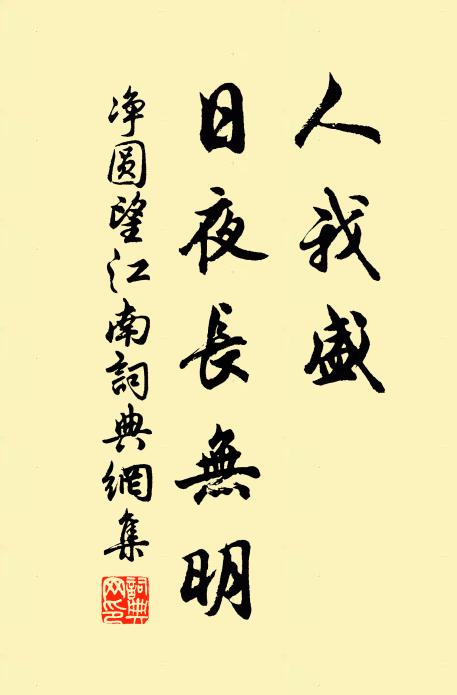 人我盛
日夜長無明
净圆望江南詞典網集
詞典
网印